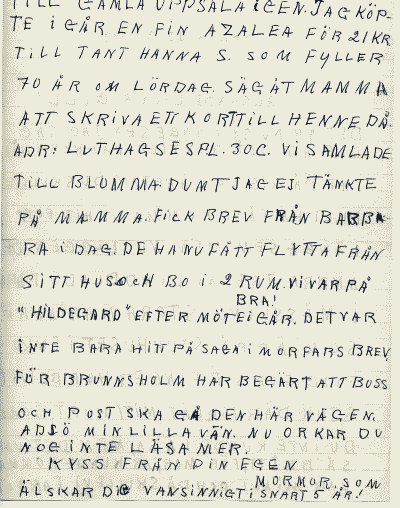 TILL GAMLA UPPSALA IGEN. JAG KÖP-
TE IGÅR EN FIN AZALEA FÖR 21 KR
TILL TANT HANNA S. SOM FYLLER
70 ÅR OM LÖRDAG. SÄG ÅT MAMMA
ATT SKRIVA ETT KORT TILL HENNE DÅ.
ADR: LUTHAGSESPL. 30 C. VI SAMLADE
TILL BLOMMA DUMT JAG EJ TÄNKTE
PÅ MAMMA. FICK BREV FRÅN BARBA-
RA I DAG. DE HA NU FÅTT FLYTTA FRÅN
SITT HUS OCH BO I 2 RUM. VI VAR PÅ
BRA!
"HILDEGARD" EFTER MÖTE IGÅR. DET VAR
INTE BARA HITTPÅ SAGA I MORFARS BREV
FÖR BRUNNSHOLM HAR BEGÄRT ATT BUSS
OCH POST SKA GÅ DEN HÄR VÄGEN.
ADJÖ MIN LILLA VÄN. NU ORKAR DU
NOG INTE LÄSA MER.
KYSS FRÅN DIN EGEN
MORMOR, SOM
ÄLSKAR DIG VANSINNIGT I SNART 5 ÅR!